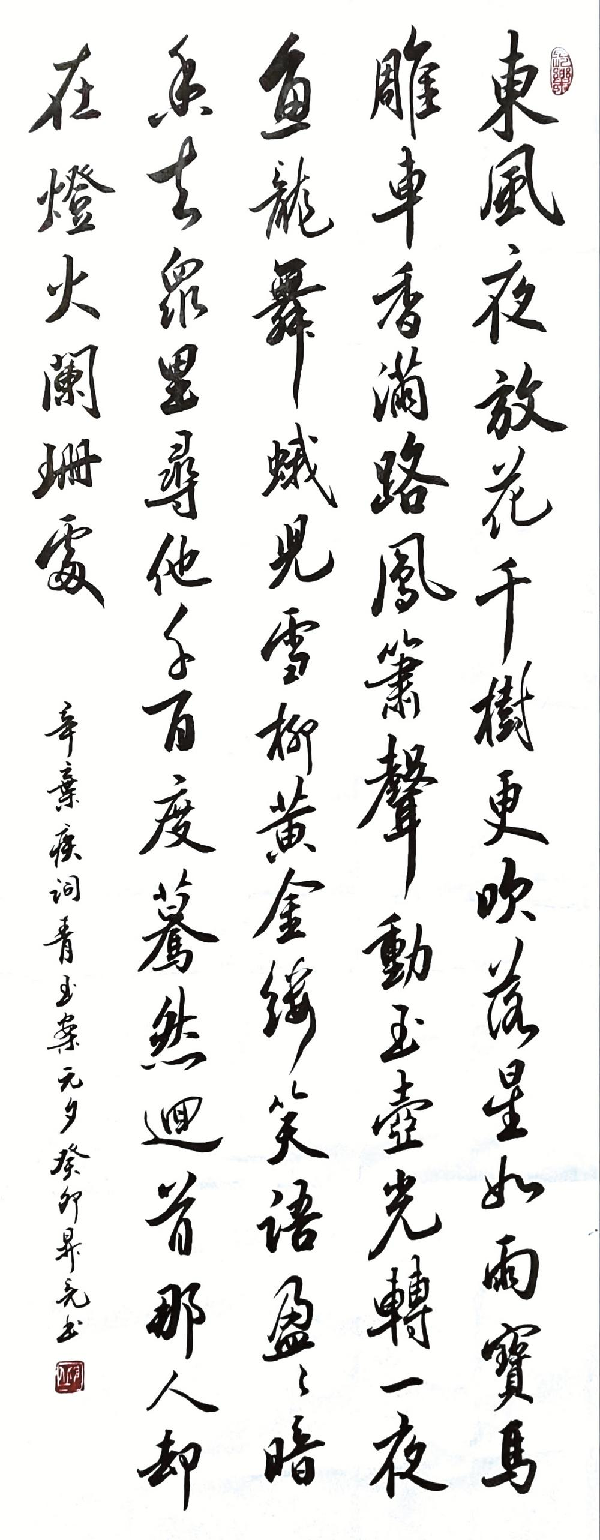 東風夜放花千樹更吹落星如雨寶馬
雕車香滿路鳳簫聲動玉壺光轉一夜
魚龍舞蛾兒雪柳黃金縷笑語盈〻暗
香去眾里尋他千百度驀然迴首那人却
在燈火闌珊處
辛棄疾詞青玉案元夕癸卯昇亮书